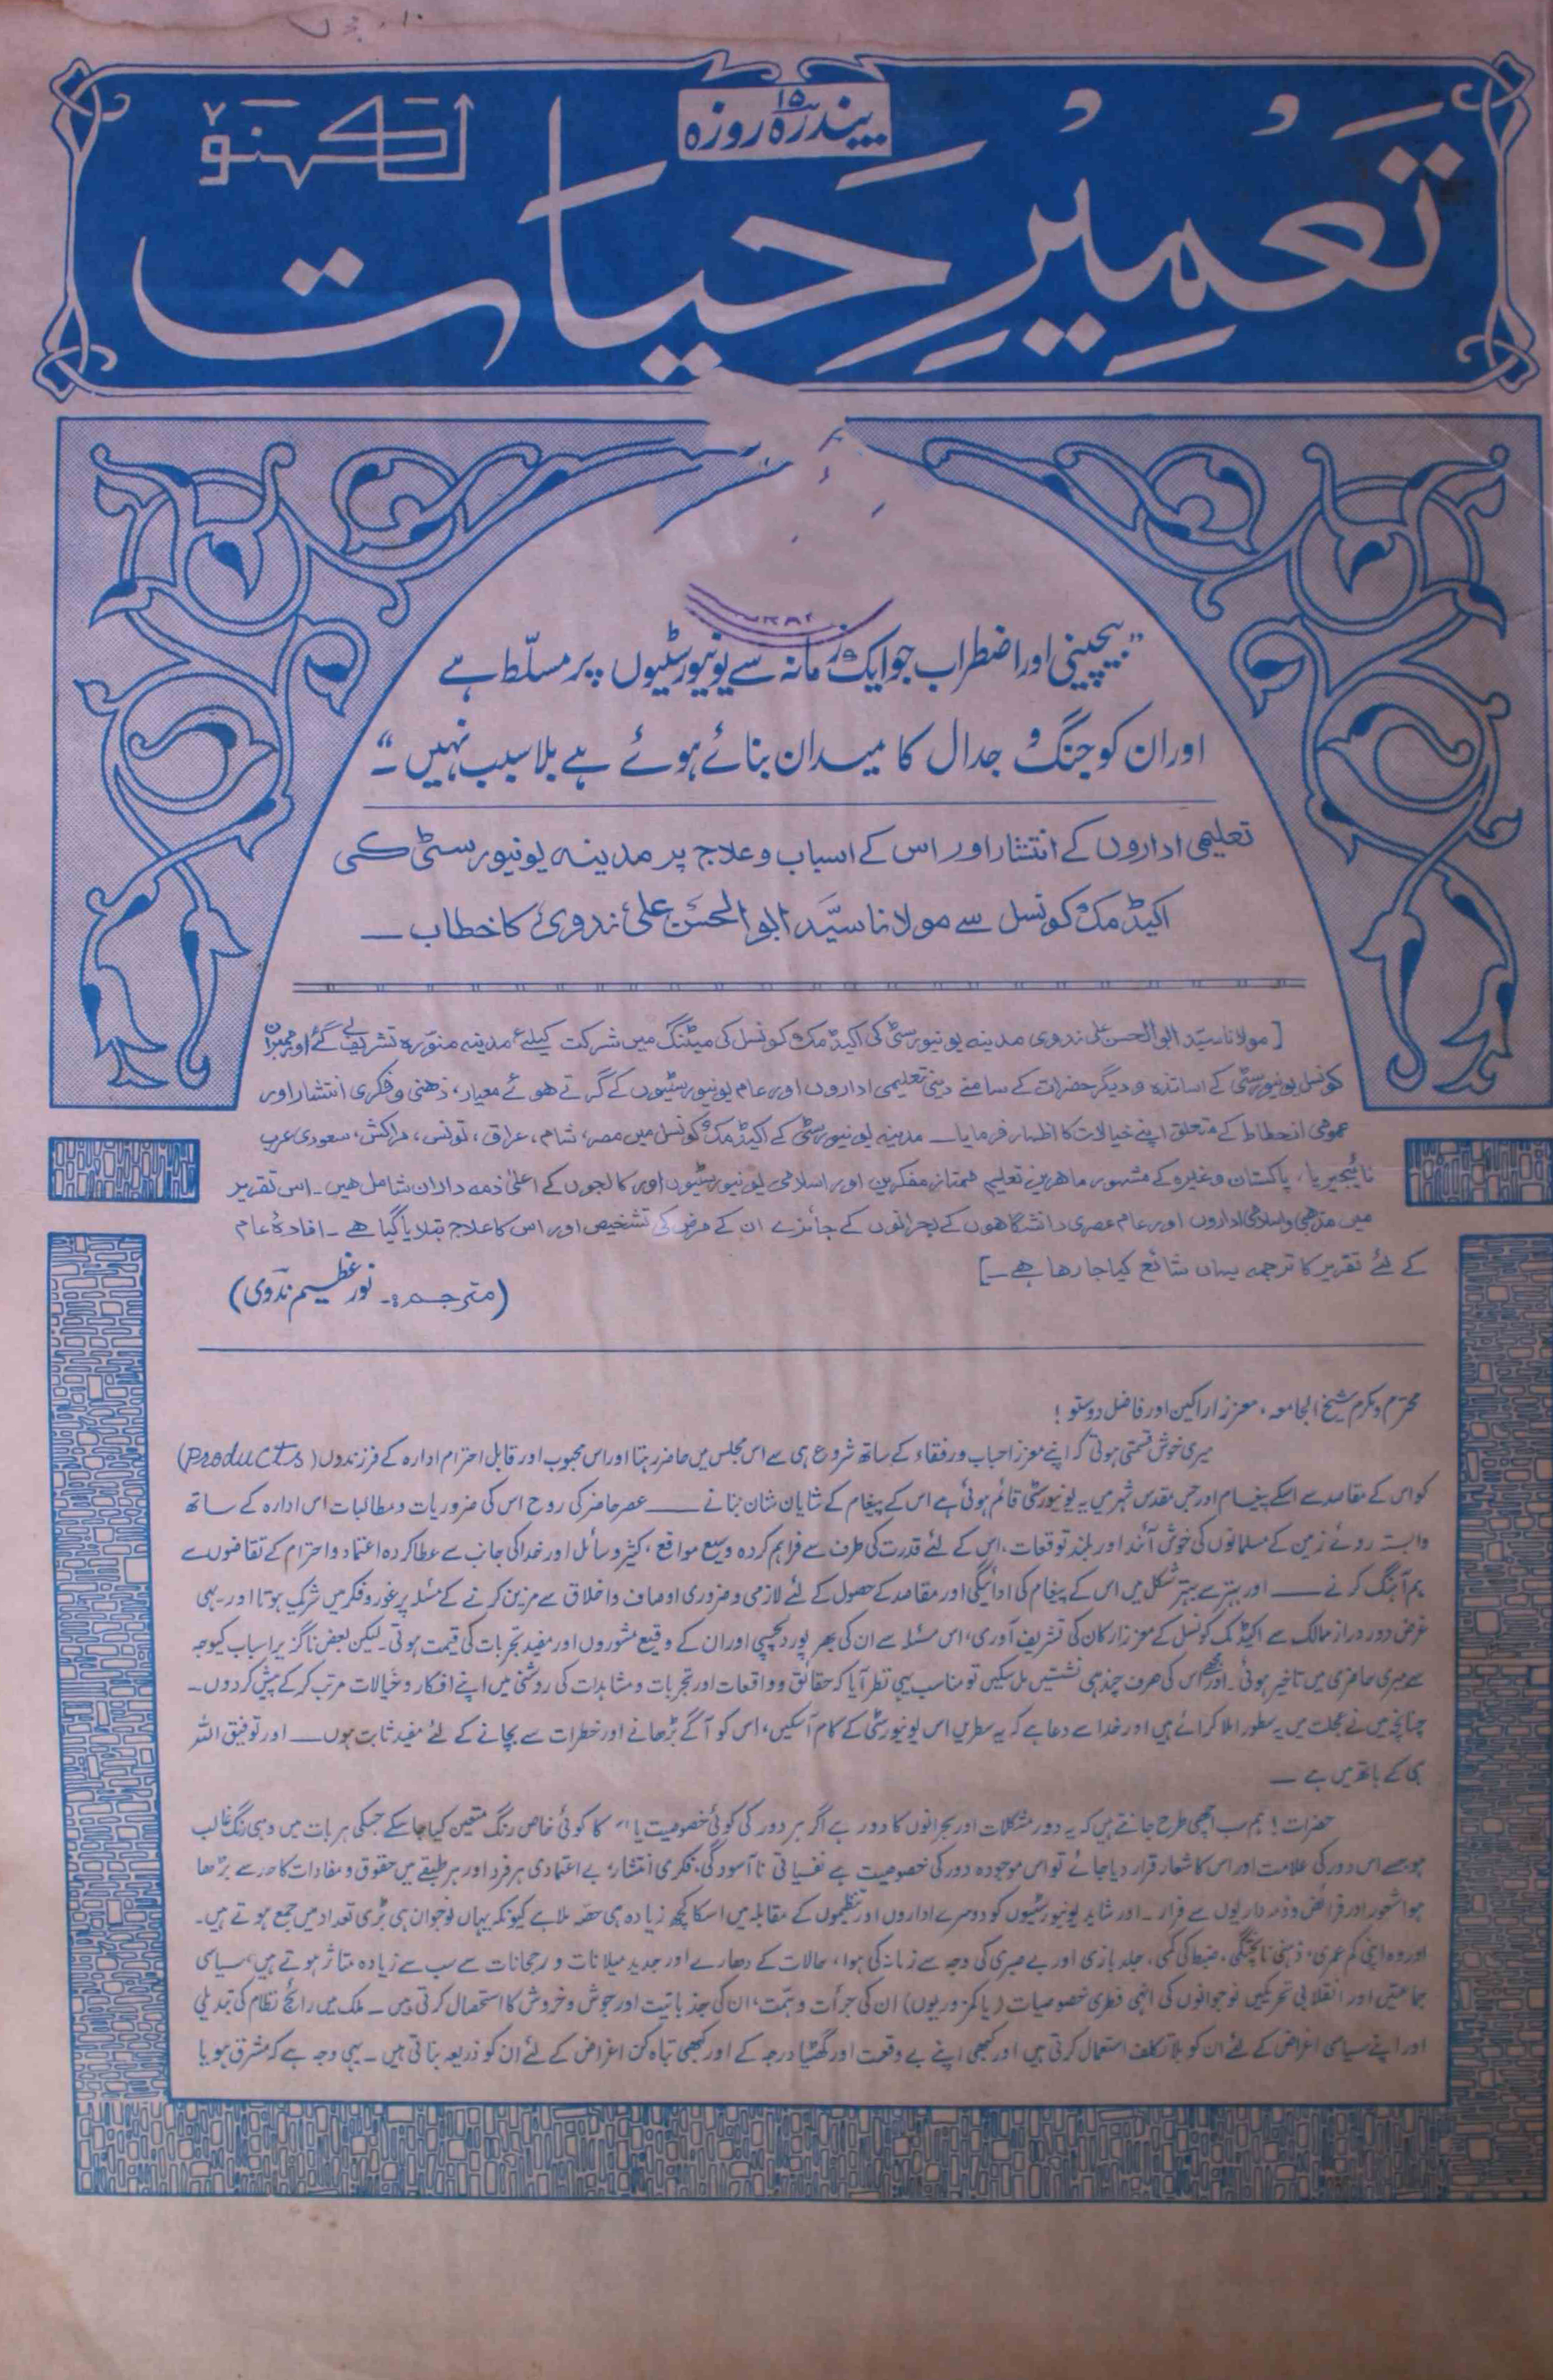 پندرہ ۱۵ روزہ
لکھنؤ
تعمیرِ حیات
”بیچینی اور اضطراب جو ایک زمانہ سے یونیورسٹیوں پر مسلّط ہے
اور ان کو جنگ و جدال کا میدان بنائے ہوئے ہے بلا سبب نہیں۔“
تعلیمی اداروں کے انتشار اور اس کے اسباب و علاج پر مدینہ یونیورسٹی کی
اکیڈمک کونسل سے مولانا سیّد ابوالحسن علی ندوی کا خطاب ــ
[مولانا سیّد ابوالحسن علی ندوی مدینہ یونیورسٹی کی اکیڈمک کونسل کی میٹنگ میں شرکت کیلئے مدینہ منوّرہ تشریف لے گئے اور ممبران
کونسل یونیورسٹی کے اساتذہ و دیگر حضرات کے سامنے دینی تعلیمی اداروں اور عام یونیورسٹیوں کے گرتے ہوئے معیار، ذہنی و فکری انتشار اور
عمومی انحطاط کے متعلق اپنے خیالات کا اظہار فرمایا ــ مدینہ یونیورسٹی کے اکیڈمک کونسل میں مصر، شام، عراق، تونس، مراکش، سعودی عرب
نائیجیریا، پاکستان وغیرہ کے مشہور ماہرین تعلیم ممتاز مفکرین اور اسلامی یونیورسٹیوں اور کالجوں کے اعلیٰ ذمہ داران شامل ہیں۔ اس تقریر
میں مذہبی و اسلامی اداروں اور عام عصری دانشگاہوں کے بحرانوں کے جائزے ان کے مرض کی تشخیص اور اس کا علاج بتلایا گیا ہے ۔ افادۂ عام
کے لئے تقریر کا ترجمہ یہاں شائع کیا جا رہا ہے ۔]
(مترجم:۔ نور عظیم ندوی)
محترم و مکرم شیخ الجامعہ، معزز اراکین اور فاضل دوستو!
میری خوش قسمتی ہوتی کہ اپنے معزز احباب و رفقاء کے ساتھ شروع ہی سے اس مجلس میں حاضر رہتا اور اس محبوب اور قابل احترام ادارہ کے فرزندوں (Products)
کو اس کے مقاصد سے اسکے پیغام اور جس مقدس شہر میں یہ یونیورسٹی قائم ہوئی ہے اس کے پیغام کے شایان شان بنانے ــ عصر حاضر کی روح اس کی ضروریات و مطالبات اس ادارہ کے ساتھ
وابستہ روئے زمین کے مسلمانوں کی خوش آئند اور بلند توقعات، اس کے لئے قدرت کی طرف سے فراہم کردہ وسیع مواقع، کثیر وسائل اور خدا کی جانب سے عطا کردہ اعتماد و احترام کے تقاضوں سے
ہم آہنگ کرنے ــ اور بہتر سے بہتر شکل میں اس کے پیغام کی ادائیگی اور مقاصد کے حصول کے لئے لازمی و ضروری اوصاف و اخلاق سے مزین کرنے کے مسئلہ پر غور و فکر میں شریک ہوتا اور ۔ یہی
غرض دور دراز ممالک سے اکیڈمک کونسل کے معزز ارکان کی تشریف آوری، اس مسئلہ سے ان کی بھر پور دلچسپی اور ان کے وقیع مشوروں اور مفید تجربات کی قیمت ہوتی ۔ لیکن بعض ناگزیر اسباب کیوجہ
سے میری حاضری میں تاخیر ہوئی ۔ اور مجھے اس کی صرف چند ہی نشستیں مل سکیں تو مناسب یہی نظر آیا کہ حقائق و واقعات اور تجربات و مشاہدات کی روشنی میں اپنے افکار و خیالات مرتب کر کے پیش کردوں ۔
چنانچہ میں نے عجلت میں یہ سطور املا کرائے ہیں اور خدا سے دعا ہے کہ یہ سطریں اس یونیورسٹی کے کام آسکیں، اس کو آگے بڑھانے اور خطرات سے بچانے کے لئے مفید ثابت ہوں ــ اور توفیق اللہ
ہی کے ہاتھ میں ہے ــ
حضرات! ہم سب اچھی طرح جانتے ہیں کہ یہ دور مشکلات اور بحرانوں کا دور ہے اگر ہر دور کی کوئی خصوصیت یا کا کوئی خاص رنگ متعین کیا جا سکے جسکی ہر بات میں وہی رنگ غالب
ہو جسے اس دور کی علامت اور اس کا شعار قرار دیا جائے تو اس موجودہ دور کی خصوصیت ہے نفسیاتی نا آسودگی، فکری انتشار، بے اعتمادی ہر فرد اور ہر طبقے میں حقوق و مفادات کا حد سے بڑھا
ہوا شعور اور فرائض و ذمہ داریوں سے فرار ۔ اور شاید یونیورسٹیوں کو دوسرے اداروں اور تنظیموں کے مقابلہ میں اسکا کچھ زیادہ ہی حصہ ملا ہے کیونکہ یہاں نوجوان ہی بڑی تعداد میں جمع ہوتے ہیں ۔
اور وہ اپنی کم عمری، ذہنی ناپختگی، ضبط کی کمی، جلد بازی اور بے صبری کی وجہ سے زمانہ کی ہوا، حالات کے دھارے اور جدید میلانات و رجحانات سے سب سے زیادہ متاثر ہوتے ہیں، سیاسی
جماعتیں اور انقلابی تحریکیں نوجوانوں کی انہی فطری خصوصیات (یا کمزوریوں) ان کی جرأت و ہمت، ان کی جذباتیت اور جوش و خروش کا استحصال کرتی ہیں ۔ ملک میں رائج نظام کی تبدیلی
اور اپنے سیاسی اغراض کے لئے ان کو بلا تکلف استعمال کرتی ہیں اور کبھی اپنے بے وقعت اور گھٹیا درجہ کے اور کبھی تباہ کن اغراض کے لئے ان کو ذریعہ بناتی ہیں ۔ یہی وجہ ہے کہ مشرق ہو یا